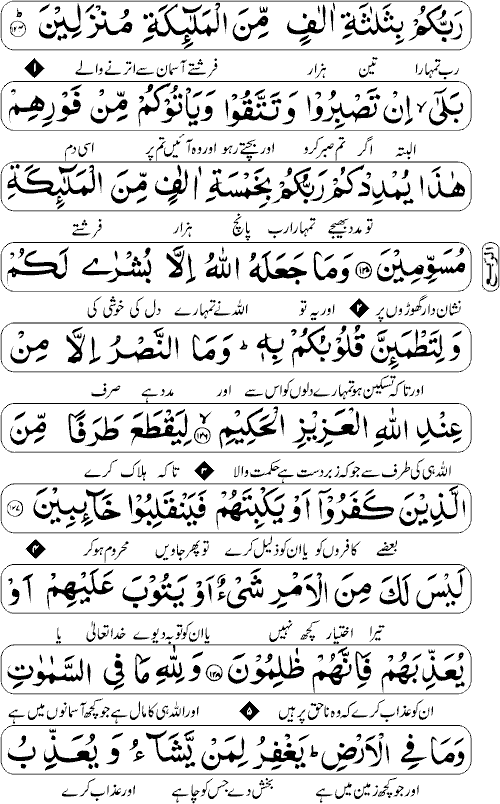 رَبُّكُمْ بِثَلٰثَةِ اٰلٰفٍ مِّنَ الْمَلٰٓئِكَةِ مُنْزَلِيْنَ ۱۲۴
رب تمہارا تین ہزار فرشتے آسمان سے اترنے والے ۱
بَلٰٓى ۙ اِنْ تَصْبِرُوْا وَتَتَّقُوْا وَيَاْتُوْكُمْ مِّنْ فَوْرِهِمْ
البتہ اگر تم صبر کرو اور بچتے رہو اور وہ آئیں تم پر اسی دم
هٰذَا يُمْدِدْكُمْ رَبُّكُمْ بِخَمْسَةِ اٰلٰفٍ مِّنَ الْمَلٰٓئِكَةِ
تو مدد بھیجے تمہارا رب پانچ ہزار فرشتے
مُسَوِّمِيْنَ ۱۲۵ وَمَا جَعَلَهُ اللهُ اِلَّا بُشْرٰى لَكُمْ
نشان دار گھوڑوں پر ۲ اور یہ تو اللہ نے تمہارے دل کی خوشی کی
وَلِتَطْمَئِنَّ قُلُوْبُكُمْ بِهٖ ؕ وَمَا النَّصْرُ اِلَّا مِنْ
اور تاکہ تسکین ہو تمہارے دلوں کو اس سے اور مدد ہے صرف
عِنْدِ اللهِ الْعَزِيْزِ الْحَكِيْمِ ۱۲۶ لِيَقْطَعَ طَرَفًا مِّنَ
اللہ ہی کی طرف سے جو کہ زبردست ہے حکمت والا ۳ تاکہ ہلاک کرے
الَّذِيْنَ كَفَرُوْٓا اَوْ يَكْبِتَهُمْ فَيَنْقَلِبُوْا خَآئِبِيْنَ ۱۲۷
بعضے کافروں کو یا ان کو ذلیل کرے تو پھر جاویں محروم ہو کر ۴
لَيْسَ لَكَ مِنَ الْاَمْرِ شَيْءٌ اَوْ يَتُوْبَ عَلَيْهِمْ اَوْ
تیرا اختیار کچھ نہیں یا ان کو توبہ دیوے خدا تعالیٰ یا
يُعَذِّبَهُمْ فَاِنَّهُمْ ظٰلِمُوْنَ ۱۲۸ وَلِلّٰهِ مَا فِي السَّمٰوٰتِ
ان کو عذاب کرے کہ وہ ناحق پر ہیں ۵ اور اللہ ہی کا مال ہے جو کچھ آسمانوں میں ہے
وَمَا فِي الْاَرْضِ ؕ يَغْفِرُ لِمَنْ يَّشَآءُ وَيُعَذِّبُ
اور جو کچھ زمین میں ہے بخش دے جس کو چاہے اور عذاب کرے